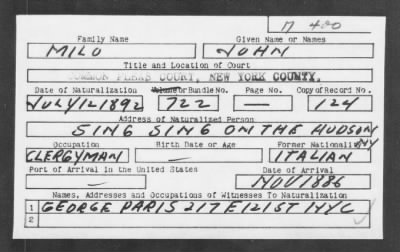 M 400
Family Name Given Name or Names
MILO JOHN
Title and Location of Court
COMMON PLEAS COURT, NEW YORK COUNTY.
Date of Naturalization Volume or Bundle No. Page No. Copy of Record No.
JULY 12 1892 722 — 124
Address of Naturalized Person
SING SING ON THE HUDSON NY
Occupation Birth Date or Age Former Nationality
CLERGYMAN — ITALIAN
Port of Arrival in the United States Date of Arrival
— NOV 1886
Names, Addresses and Occupations of Witnesses To Naturalization
1 GEORGE PARIS 217 E 121 ST NYC
2